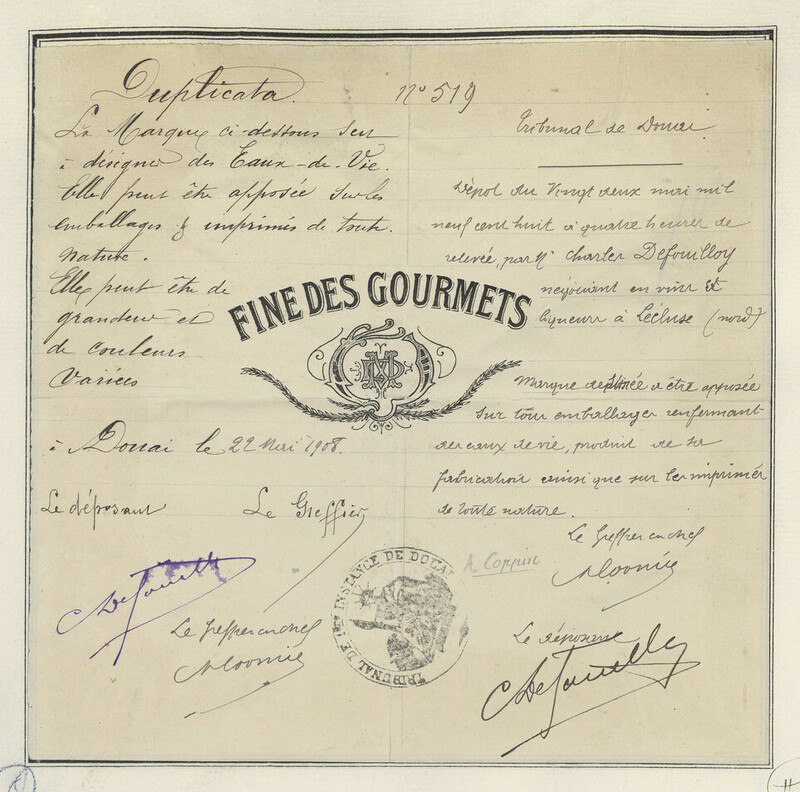 Duplicata.
La Marque ci-dessous sert
à désigner des Eaux-de-Vie.
Elle peut être apposée sur les
emballages & imprimés de toute
nature.
Elle peut être de
grandeur et
de couleurs
variées
à Douai le 22 Mai 1908.
Le déposant
Le Greffier
Le Greffier en chef
n° 519
Tribunal de Douai
Dépôt du Vingt deux mai mil
neuf cent huit à quatre heures de
relevée, par Mr Charles Defouilloy
négociant en vins et
liqueurs à Lécluse (nord)
Marque destinée à être apposée
sur tous emballages renfermant
des eaux de vie, produit de sa
fabrication ainsi que sur les imprimés
de toute nature.
Le Greffier en chef
A Coppin
Le déposant
FINE DES GOURMETS
TRIBUNAL DE 1ère INSTANCE DE DOUAI